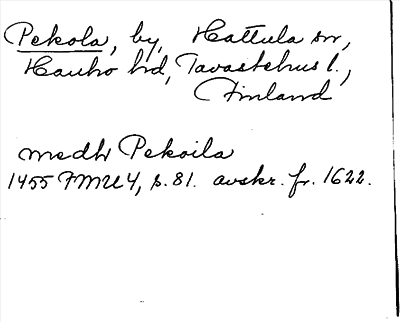 Pekola, by, Hattula sn,
Hauho hd, Tavastehus l.,
Finland
medh Pekoila
1455 FMU 4, s. 81. avskr. fr. 1622.